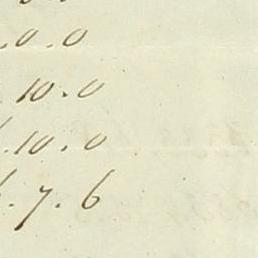 .0.0
10.0
.10.0
.7.6